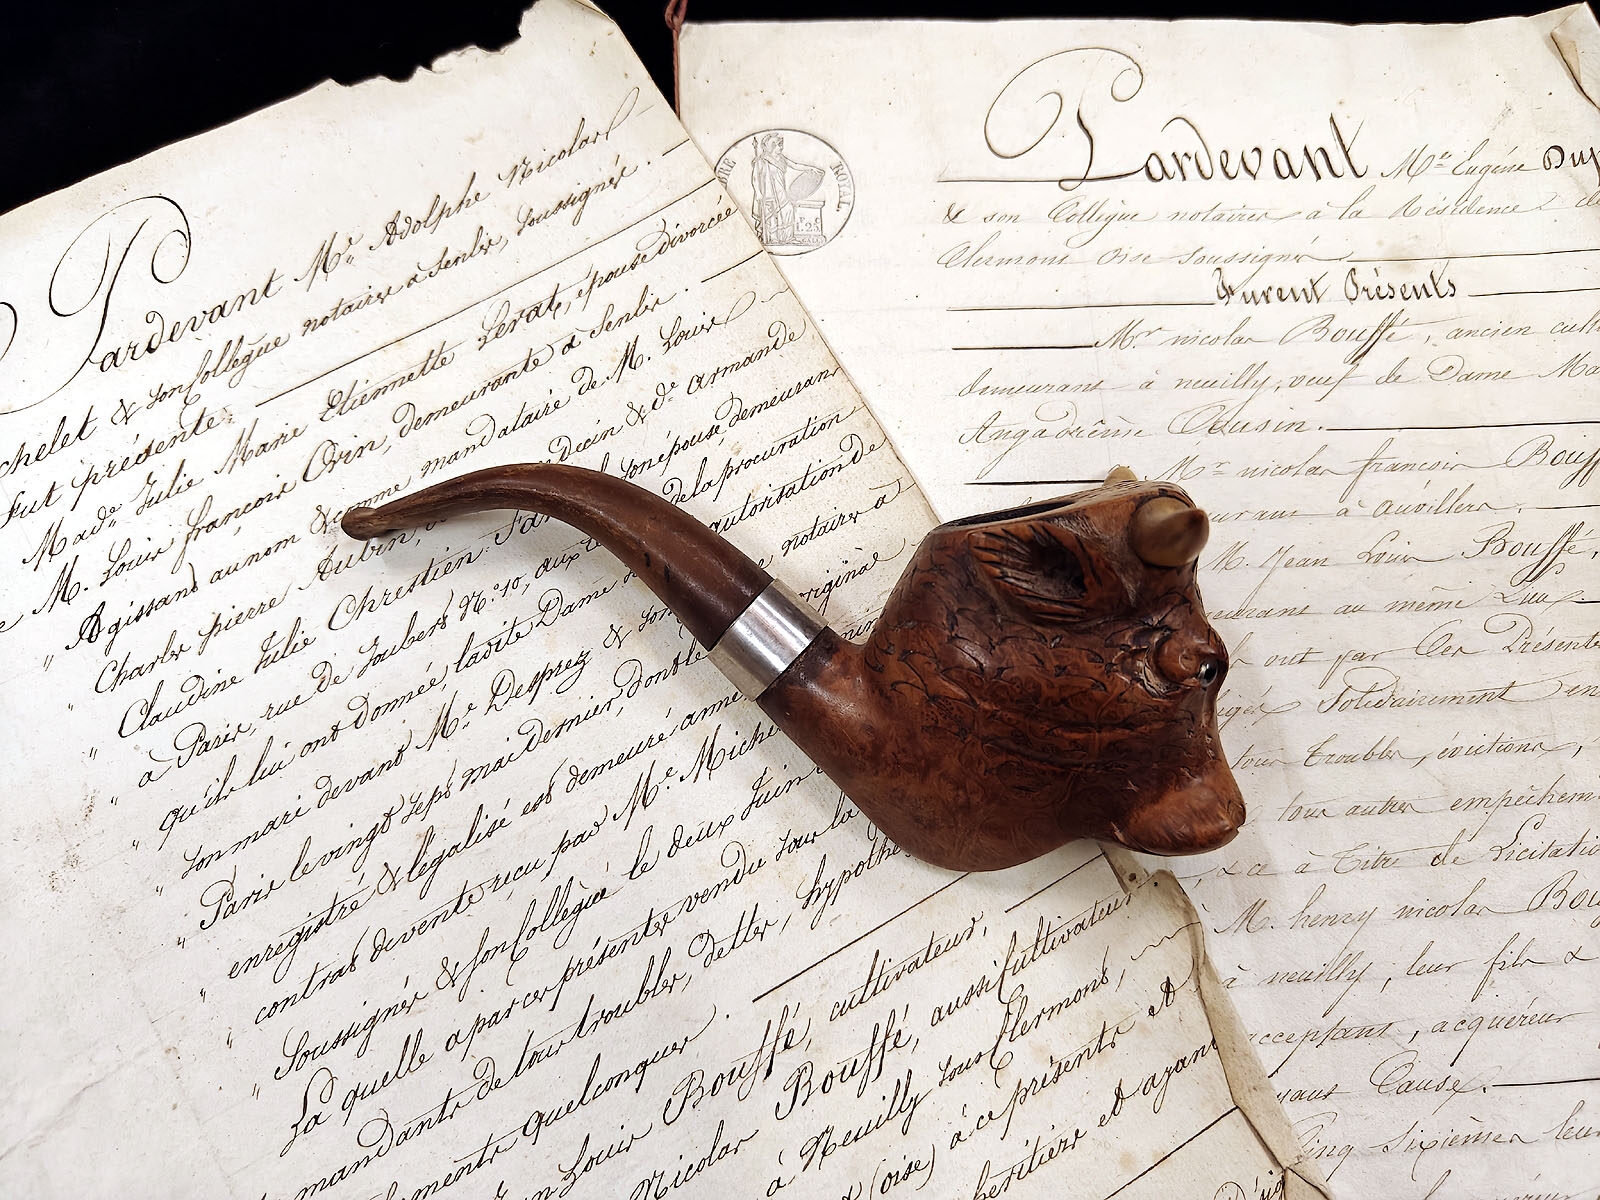 Pardevant Me. Adolphe Nicolas
chelet & son Collègue notaires à Senlis, soussignés.
Fut présente:
Made. Julie Marie Etiennette Lerat, épouse divorcée
M. Louis françois Ovin, demeurante à Senlis.
Agissant au nom & comme mandataire de M. Louis
Charles pierre Aubin, decin & de. Armande
Claudine Julie Chrestien son épouse, demeurant
à Paris, rue de Joubert No. 10, aux de la procuration
qu'ils lui ont donnée, ladite Dame autorisation de
son mari devant Me. Desprez & son notaires à
Paris le vingt sept mai dernier, dont le originé
enregistré & légalisé est demeuré anne
contrat de vente reçu par Me. Miche
Soussigné & son Collègue le deux Juin
La quelle a par ces présentes vendu sous la
mandants de tous troubles, dettes, hypothe
quelconques
Louis Bouffé, cultivateur,
Nicolas Bouffé, aussi Cultivateur
à Neuilly sous Clermont,
(oise) à ce présents et
héritiers et ayant
BRE ROYAL
1.25
Pardevant Me. Eugène Dup
& son Collègue notaires à la Résidence de
Clermont oise soussignés
Furent Présents
Mr. nicolas Bouffé, ancien cult
demeurant à neuilly, veuf de Dame Ma
Angadrême Cousin.
Mr. nicolas françois Bouff
urant à auvillers.
M. Jean Louis Bouffé,
eurant au même Lieu.
ont par Ces Présente
Solidairement en
tous Troubles, évictions,
tous autres empêchem
à Titre de Licitatio
M. henry nicolas Bou
à neuilly, leur fils &
acceptant, acquéreur
ayant Cause.
Cinq Sixièmes leur